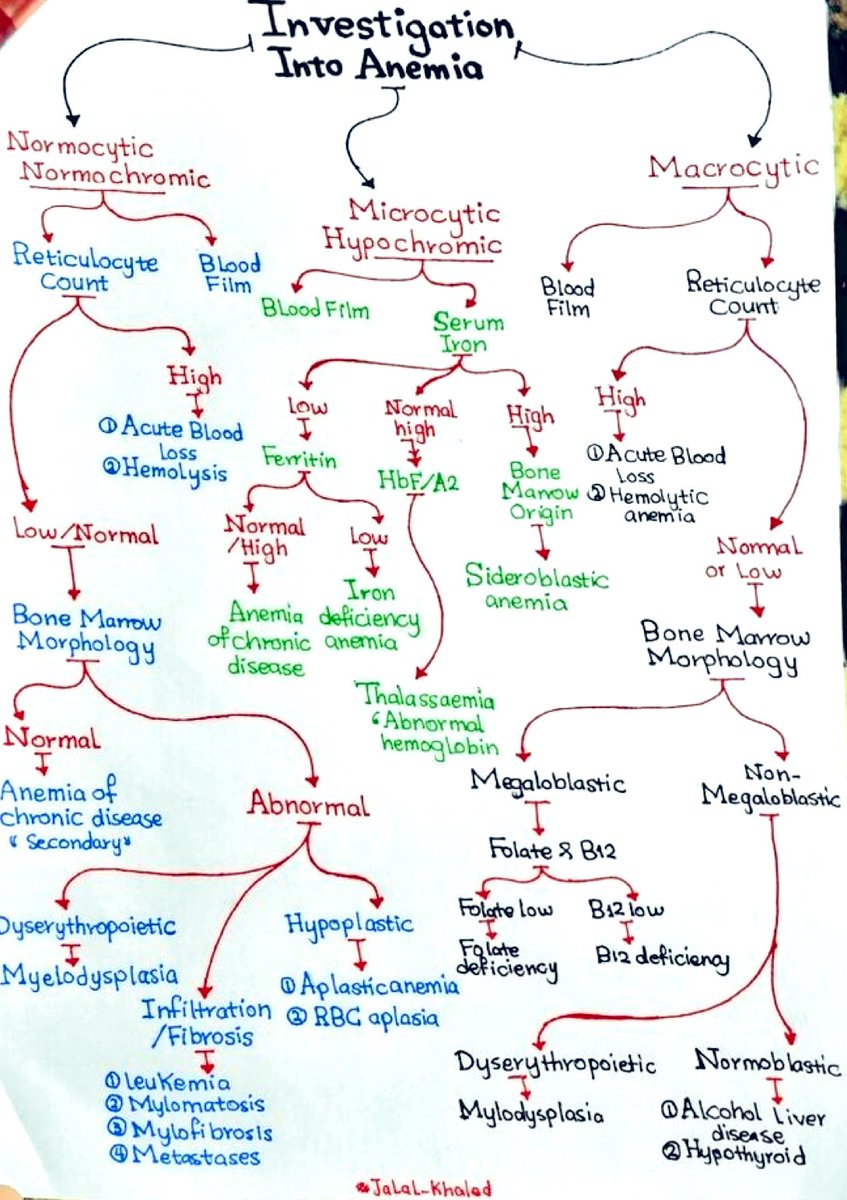 Investigation
Into Anemia
Normocytic
Normochromic
Reticulocyte
Count
Blood
Film
High
① Acute Blood
Loss
② Hemolysis
Low/Normal
Bone Marrow
Morphology
Normal
Anemia of
chronic disease
“Secondary”
Abnormal
Dyserythropoietic
Myelodysplasia
Infiltration
/Fibrosis
① Leukemia
② Mylomatosis
③ Mylofibrosis
④ Metastases
Hypoplastic
① Aplastic anemia
② RBC aplasia
Microcytic
Hypochromic
Blood Film
Serum
Iron
Low
Ferritin
Normal
/High
Anemia
of chronic
disease
Low
Iron
deficiency
anemia
Normal
high
HbF/A2
Thalassaemia
“Abnormal
hemoglobin
High
Bone
Marrow
Origin
Sideroblastic
anemia
Macrocytic
Blood
Film
Reticulocyte
Count
High
① Acute Blood
Loss
② Hemolytic
anemia
Normal
or Low
Bone Marrow
Morphology
Megaloblastic
Folate & B12
Folate low
Folate
deficiency
B12 low
B12 deficiency
Non-
Megaloblastic
Dyserythropoietic
Mylodysplasia
Normoblastic
① Alcohol Liver
disease
② Hypothyroid
JaLaL-Khaled